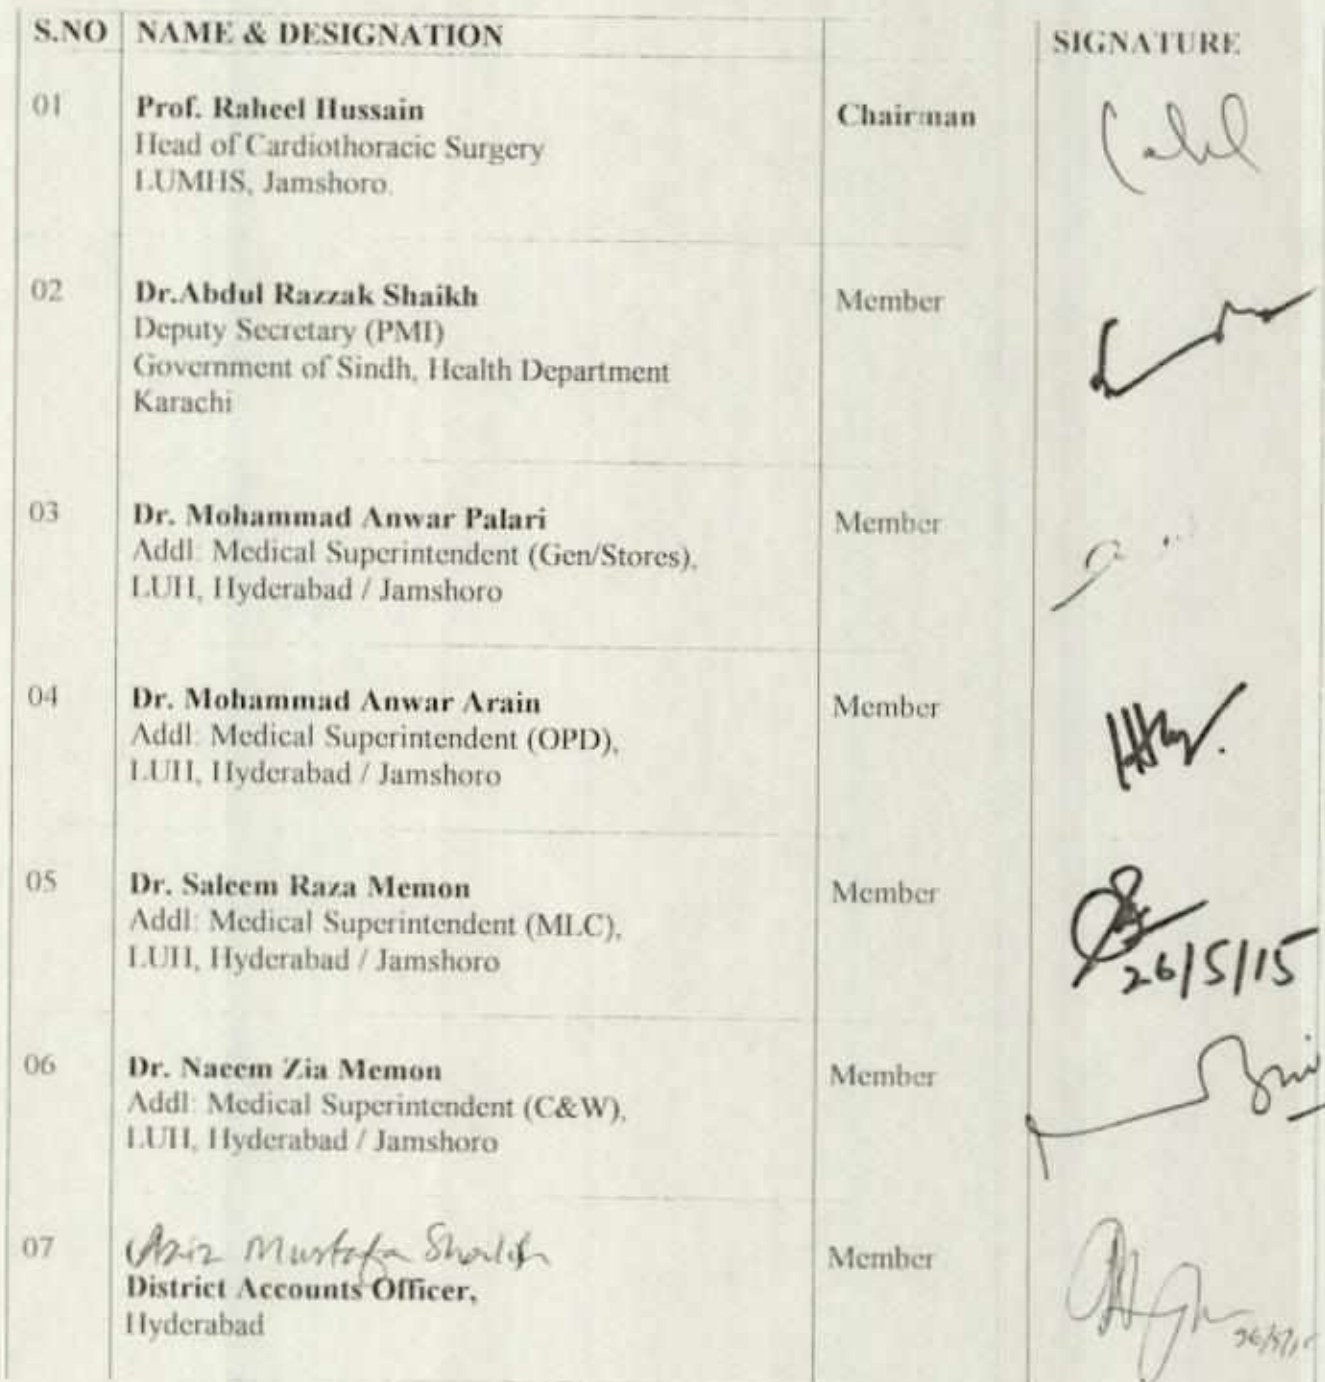 S.NO NAME & DESIGNATION SIGNATURE
01 Prof. Raheel Hussain Chairman
Head of Cardiothoracic Surgery
LUMHS, Jamshoro.
02 Dr.Abdul Razzak Shaikh Member
Deputy Secretary (PMI)
Government of Sindh, Health Department
Karachi
03 Dr. Mohammad Anwar Palari Member
Addl: Medical Superintendent (Gen/Stores),
LUH, Hyderabad / Jamshoro
04 Dr. Mohammad Anwar Arain Member
Addl: Medical Superintendent (OPD),
LUH, Hyderabad / Jamshoro
05 Dr. Saleem Raza Memon Member
Addl: Medical Superintendent (MLC),
LUH, Hyderabad / Jamshoro
26/5/15
06 Dr. Naeem Zia Memon Member
Addl: Medical Superintendent (C&W),
LUH, Hyderabad / Jamshoro
07 Aziz Mustafa Shaikh Member
District Accounts Officer,
Hyderabad